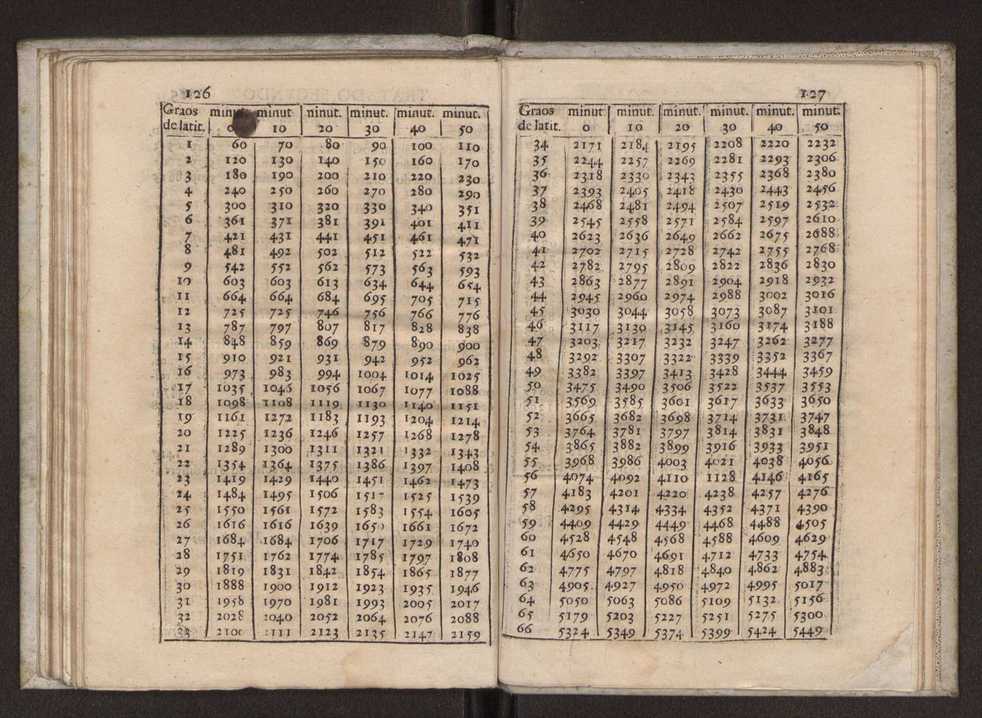 126
Graos minut. minut. minut. minut. minut. minut.
de latit. 0 10 20 30 40 50
1 60 70 80 90 100 110
2 120 130 140 150 160 170
3 180 190 200 210 220 230
4 240 250 260 270 280 290
5 300 310 320 330 340 351
6 361 371 381 391 401 411
7 421 431 441 451 461 471
8 481 492 502 512 522 532
9 542 552 562 573 563 593
10 603 603 613 634 644 654
11 664 664 684 695 705 715
12 725 725 746 756 766 776
13 787 797 807 817 828 838
14 848 859 869 879 890 900
15 910 921 931 942 952 962
16 973 983 994 1004 1014 1025
17 1035 1046 1056 1067 1077 1088
18 1098 1108 1119 1130 1140 1151
19 1161 1272 1183 1193 1204 1214
20 1225 1236 1246 1257 1268 1278
21 1289 1300 1311 1321 1332 1343
22 1354 1364 1375 1386 1397 1408
23 1419 1429 1440 1451 1462 1473
24 1484 1495 1506 1517 1525 1539
25 1550 1561 1572 1583 1554 1605
26 1616 1616 1639 1650 1661 1672
27 1684 1684 1706 1717 1729 1740
28 1751 1762 1774 1785 1797 1808
29 1819 1831 1842 1854 1865 1877
30 1888 1900 1912 1923 1935 1946
31 1958 1970 1981 1993 2005 2017
32 2028 2040 2052 2064 2076 2088
33 2100 2111 2123 2135 2147 2159
127
Graos minut minut. minut. minut. minut. minut.
de latit. 0 10 20 30 40 50
34 2171 2184 2195 2208 2220 2232
35 2244 2257 2269 2281 2293 2306
36 2318 2330 2343 2355 2368 2380
37 2393 2405 2418 2430 2443 2456
38 2468 2481 2494 2507 2519 2532
39 2545 2558 2571 2584 2597 2610
40 2623 2636 2649 2662 2675 2688
41 2702 2715 2728 2742 2755 2768
42 2782 2795 2809 2822 2836 2830
43 2863 2877 2891 2904 2918 2932
44 2945 2960 2974 2988 3002 3016
45 3030 3044 3058 3073 3087 3101
46 3117 3130 3145 3160 3174 3188
47 3203 3217 3232 3247 3262 3277
48 3292 3307 3322 3339 3352 3367
49 3382 3397 3413 3428 3444 3459
50 3475 3490 3506 3522 3537 3553
51 3569 3585 3601 3617 3633 3650
52 3665 3682 3698 3714 3731 3747
53 3764 3781 3797 3814 3831 3848
54 3865 3882 3899 3916 3933 3951
55 3968 3986 4003 4021 4038 4056
56 4074 4092 4110 1128 4146 4165
57 4183 4201 4220 4238 4257 4276
58 4295 4314 4334 4352 4371 4390
59 4409 4429 4449 4468 4488 4505
60 4528 4548 4568 4588 4609 4629
61 4650 4670 4691 4712 4733 4754
62 4775 4797 4818 4840 4862 4883
63 4905 4927 4950 4972 4995 5017
64 5050 5063 5086 5109 5132 5156
65 5179 5203 5227 5251 5275 5300
66 5324 5349 5374 5399 5424 5449